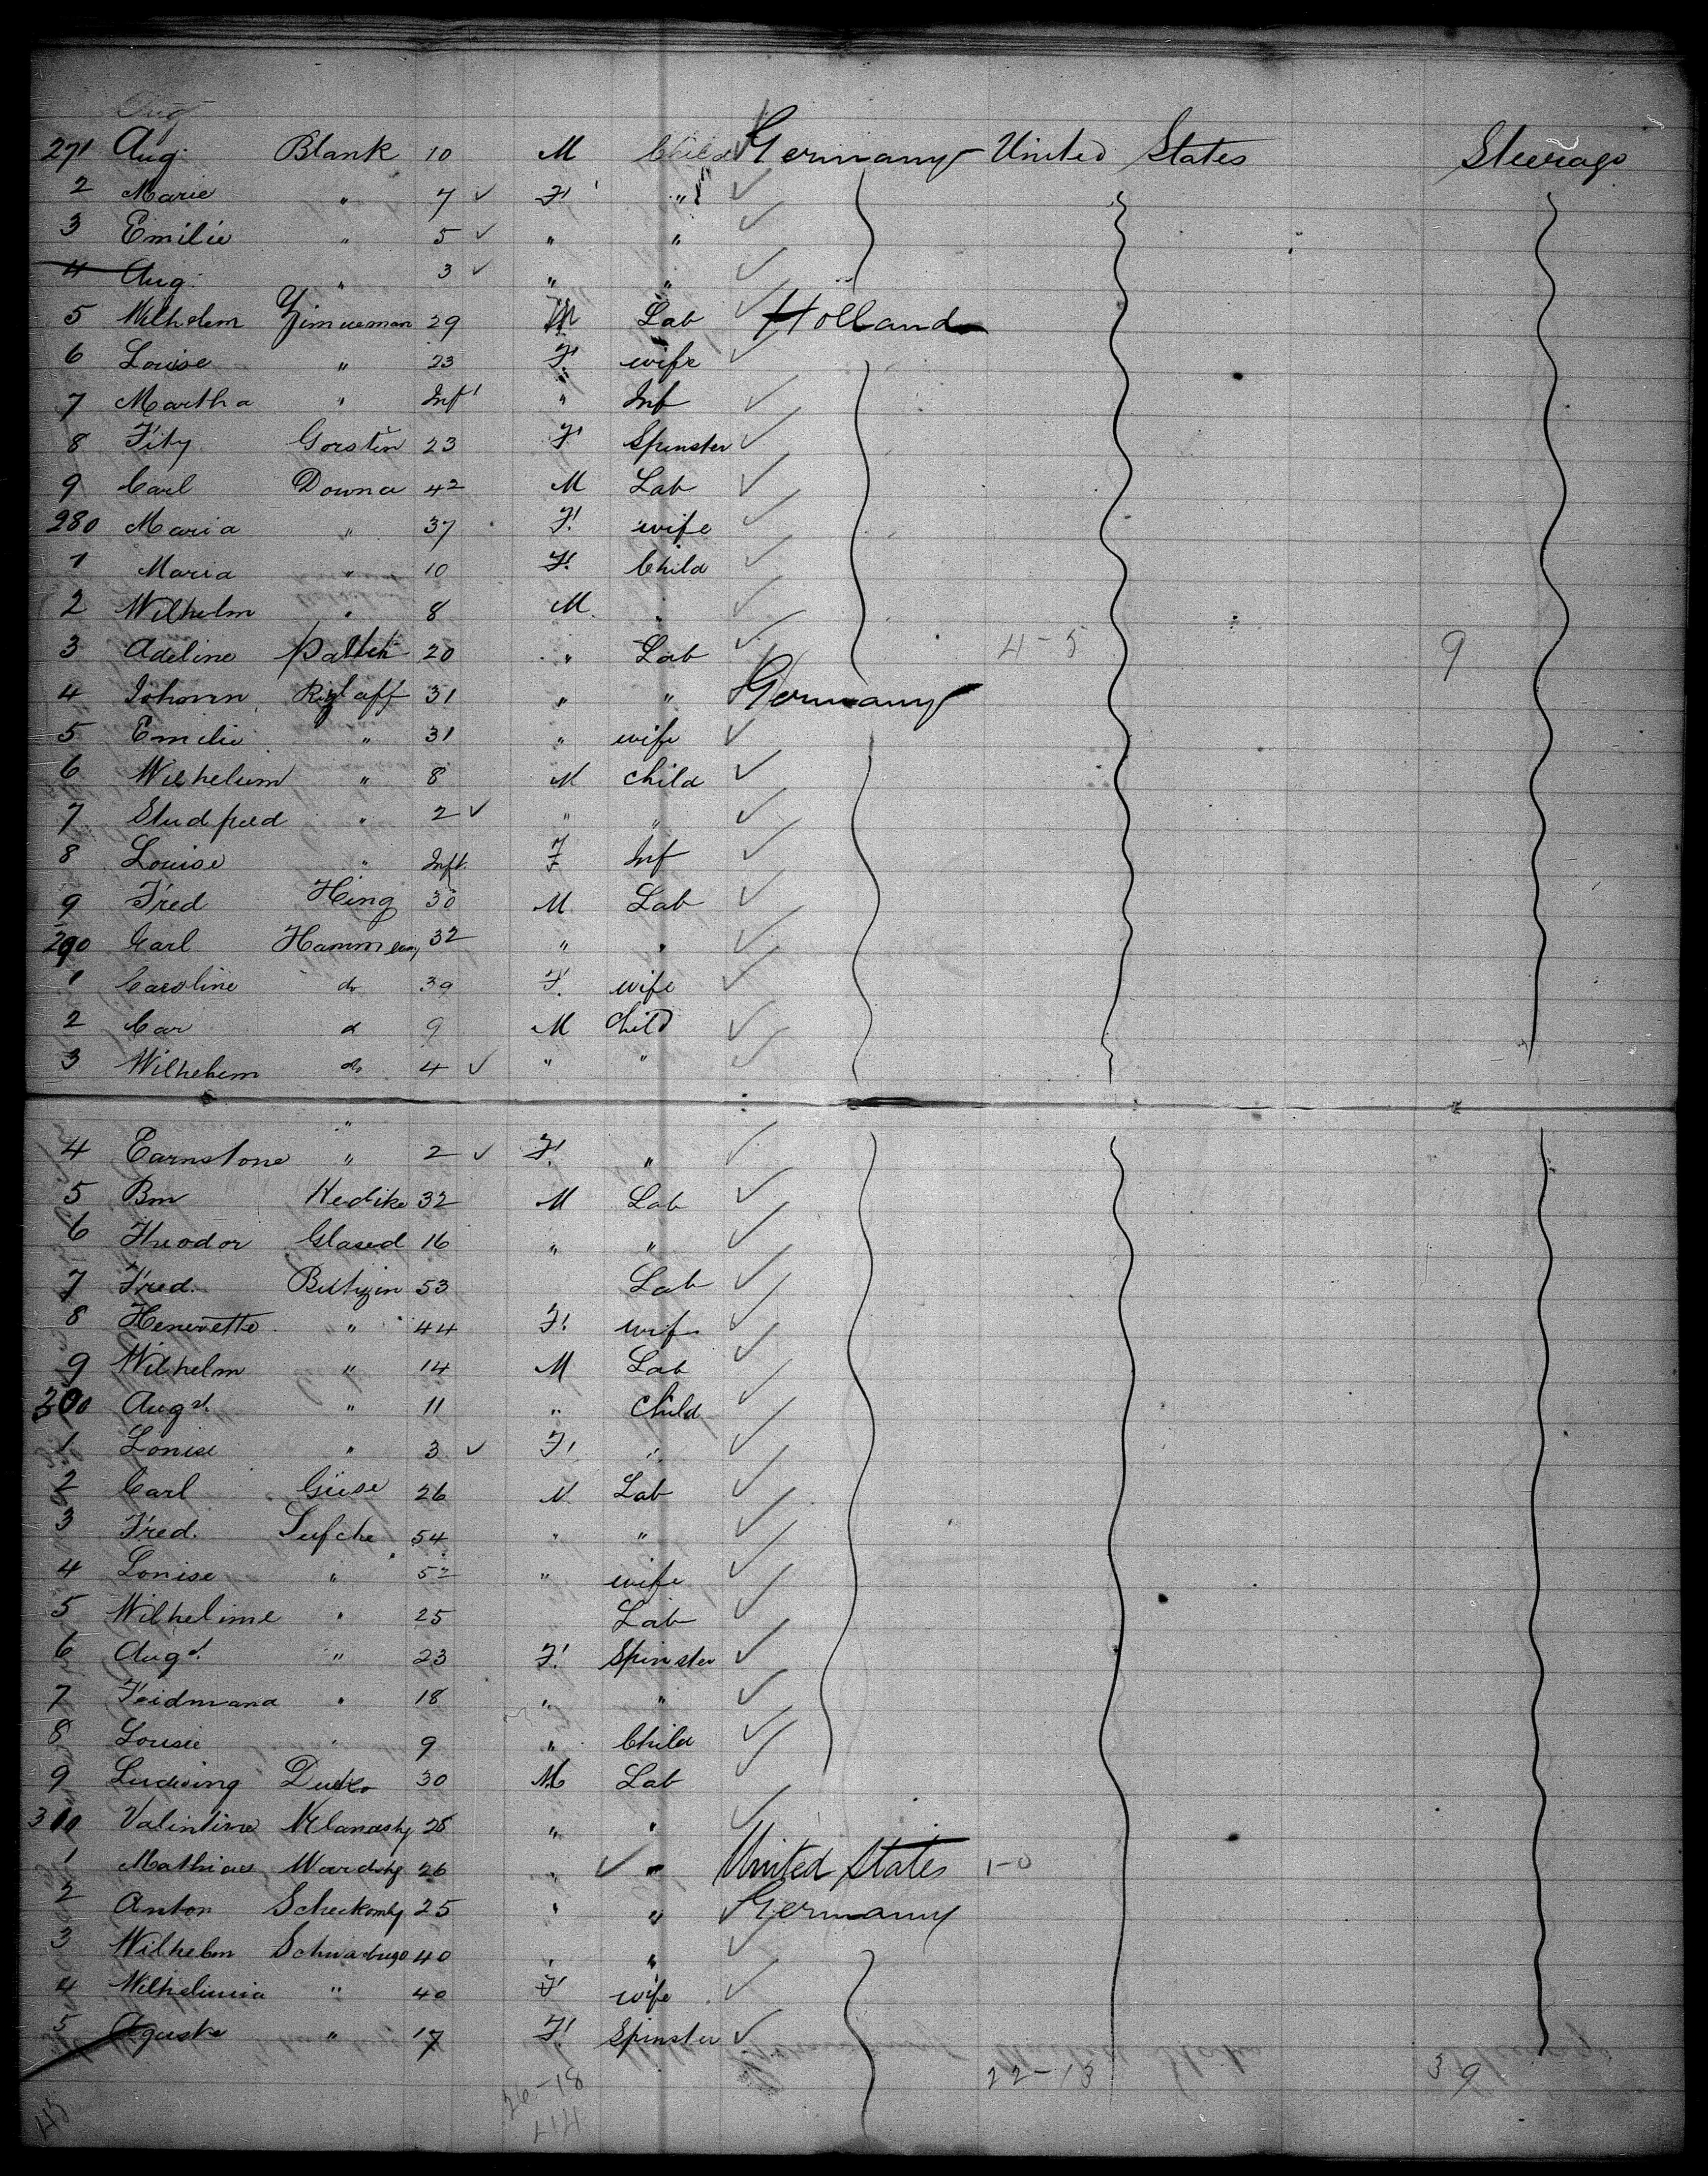 Aug
271 Aug. Blank 10 M Child Germany United States Steerage
2 Marie " 7 ✓ F " ✓
3 Emilie " 5 ✓ " " ✓
4 Aug. " 3 ✓ " " ✓
5 Wilhelm Zimmeman 29 M Lab ✓ Holland
6 Louise " 23 F. wife ✓
7 Martha " Inft " Inf ✓
8 Fity Gorstin 23 F Spinster ✓
9 Carl Downa 42 M Lab ✓
280 Maria " 37 F. wife ✓
1 Maria " 10 F. Child ✓
2 Wilhelm " 8 M. " ✓
3 Adeline 20 " Lab ✓ 4-5 9
4 Johann 31 " " Germany
5 Emilie " 31 " wife ✓
6 Wilhelum " 8 M child ✓
7 Studfred " 2 ✓ " " ✓
8 Louise " Inft. F Inf ✓
9 Fred Hing 30 M Lab ✓
290 Carl 32 " " ✓
1 Caroline do 39 F. wife ✓
2 Car do 9 M Child ✓
3 Wilhelum do 4 ✓ " " ✓
4 Earnstone " 2 ✓ F. " ✓
5 Bm Hedike 32 M Lab ✓
6 Theodor Glased 16 " " ✓
7 Fred. 53 Lab ✓
8 Henerette " 44 F. wife ✓
9 Wilhelm " 14 M Lab ✓
300 Augst. " 11 " Child ✓
1 Lonise " 3 ✓ F. " ✓
2 Carl Guse 26 M Lab ✓
3 Fred. Lufche 54 " " ✓
4 Lonise " 52 " wife ✓
5 Wilhelime " 25 Lab ✓
6 Augst. " 23 F. Spinster ✓
7 Feidmana " 18 " " ✓
8 Lousie " 9 " Child ✓
9 Ludwing 30 M Lab ✓
310 Valintine 28 " " ✓
1 Mathias 26 " ✓ " United States 1-0
2 Anton 25 " " ✓ Germany
3 Wilhelm 40 " " ✓
4 Wilhelimia " 40 F wife ✓
5 Aguste " 17 F. Spinster ✓
26-18 22-13 39
45 44